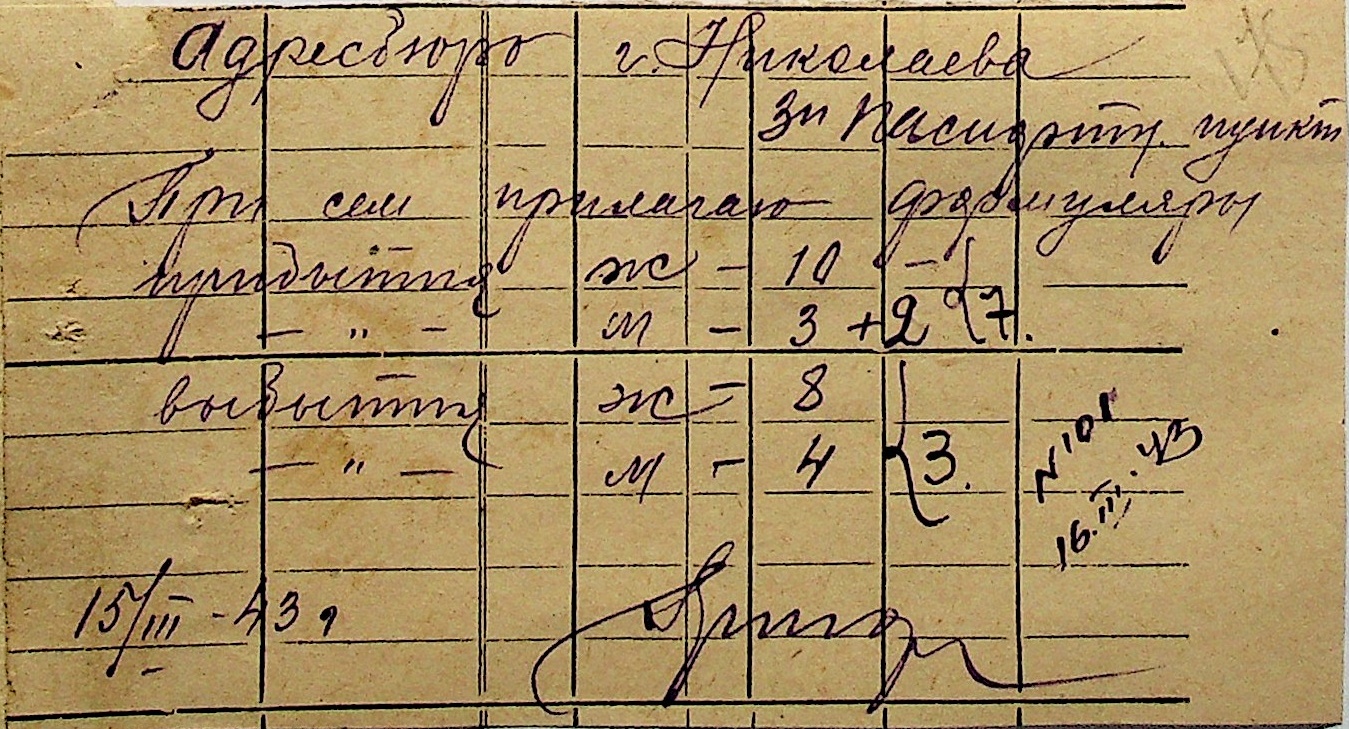 Адресбюро г. Николаева
3й Паспортн. пункт
При сем прилагаю формуляры
прибытия ж - 10 -
- " - м - 3 + 2 } 7.
выбытия ж - 8
- " - м - 4 } 3.
N 101
16.III.43
15/III - 43 г
175